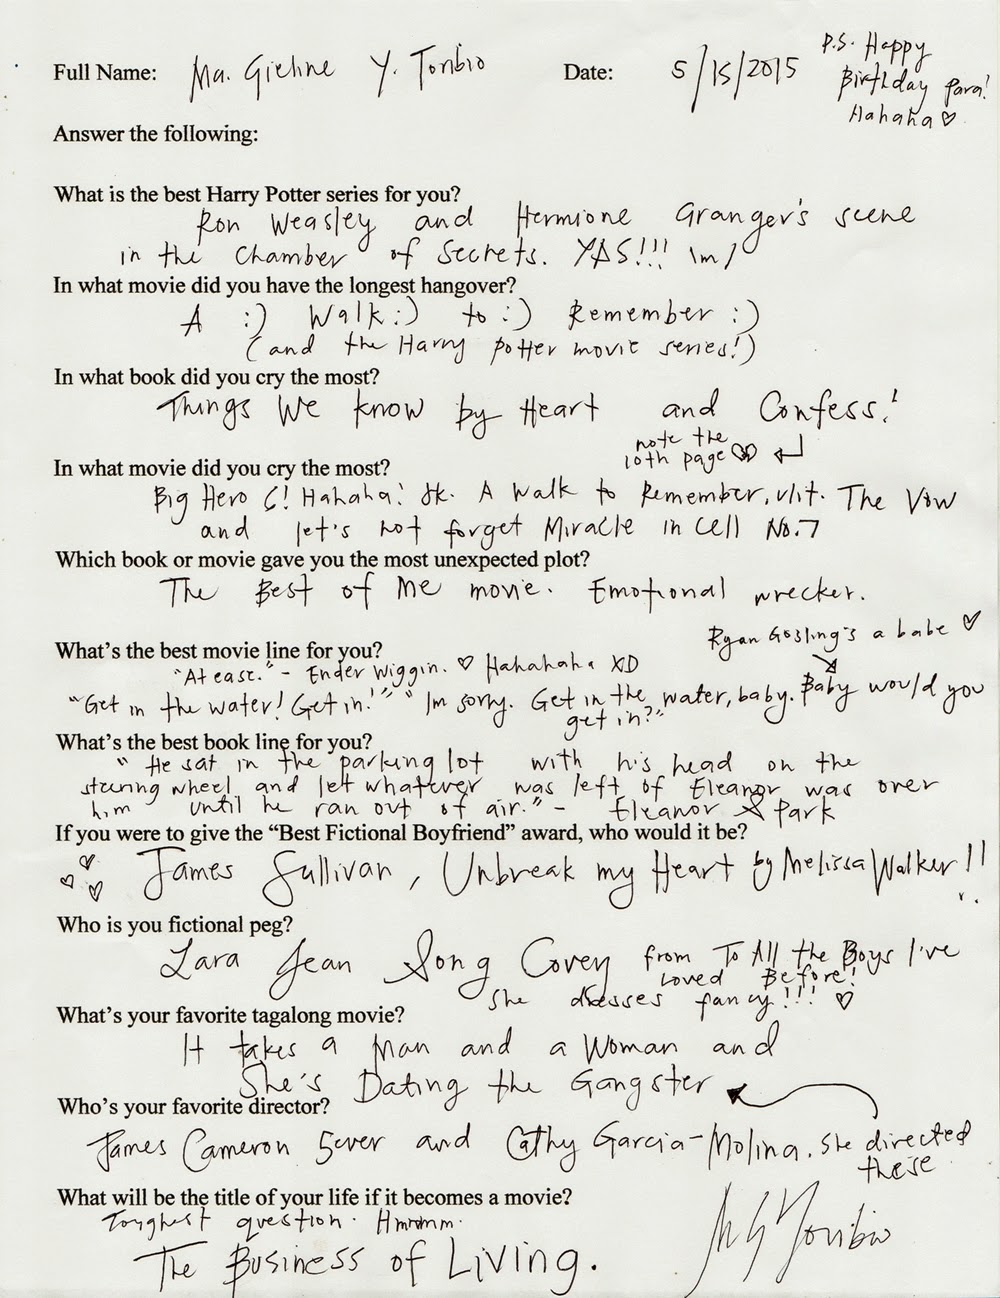 Full Name: Ma. Gieline Y. Toribio Date: 5/15/2015
P.S. Happy
Birthday para!
Hahaha ♡
Answer the following:
What is the best Harry Potter series for you?
Ron Weasley and Hermione Granger's scene
in the Chamber of Secrets. YAS!!! \m/
In what movie did you have the longest hangover?
A :) Walk :) to :) Remember :)
(and the Harry Potter movie series!)
In what book did you cry the most?
Things We Know by Heart and Confess!
note the
10th page
In what movie did you cry the most?
Big Hero 6! Hahaha! Jk. A Walk to Remember, The Vow
and let's not forget Miracle in Cell No. 7
Which book or movie gave you the most unexpected plot?
The Best of Me movie. Emotional wrecker.
Ryan Gosling's a babe ♡
What's the best movie line for you?
"At ease." - Ender Wiggin. ♡ Hahahaha XD
"Get in the water! Get in!" "I'm sorry. Get in the water, baby. Baby would you
get in?"
What's the best book line for you?
"He sat in the parking lot with his head on the
steering wheel and let whatever was left of Eleanor was over
him until he ran out of air." - Eleanor & Park
If you were to give the “Best Fictional Boyfriend” award, who would it be?
James Sullivan, Unbreak my Heart by Melissa Walker!!
Who is you fictional peg?
Lara Jean Song Covey from To All the Boys I've
Loved Before!
She dresses fancy!!! ♡
What's your favorite tagalong movie?
It takes a Man and a Woman and
She's Dating the Gangster
Who's your favorite director?
James Cameron 5ever and Cathy Garcia-Molina. She directed
these
What will be the title of your life if it becomes a movie?
Toughest question. Hmmmm.
The Business of Living.
MGYToribio